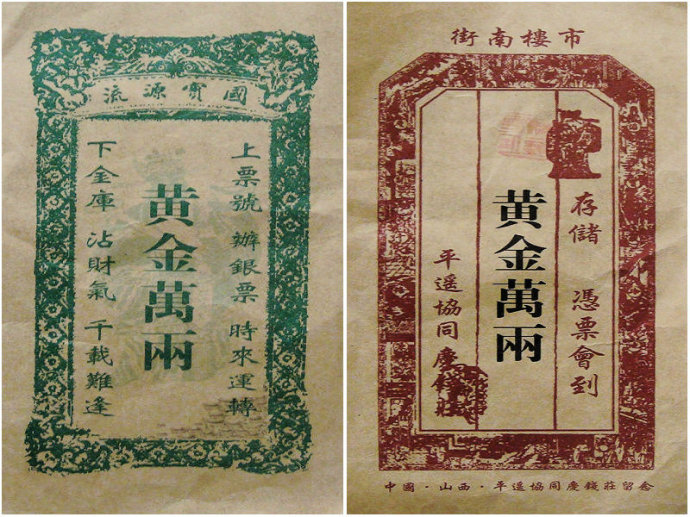 國寶源流
上票號 辦銀票 時來運轉
黃金萬兩
下金庫 沾財氣 千載難逢
市樓南街
存儲 憑票會到
黃金萬兩
平遥協同慶錢莊
中國·山西·平遥協同慶錢莊留念